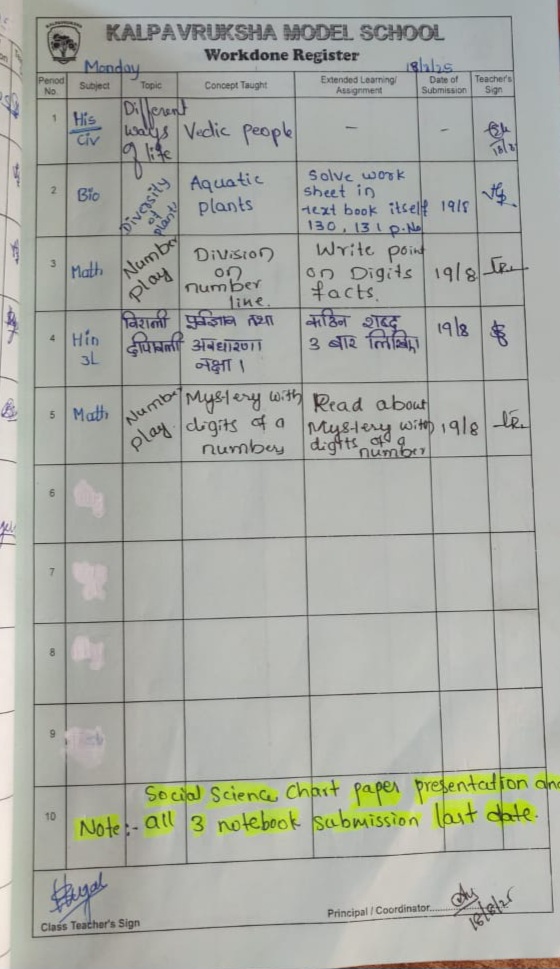 KALPAVRUKSHA MODEL SCHOOL
Workdone Register
Monday 18/8/25
Period No. Subject Topic Concept Taught Extended Learning/ Assignment Date of Submission Teacher's Sign
1 His/Civ Different ways of life Vedic people - -
2 Bio Diversity of plants Aquatic plants Solve work sheet in text book itself 130, 131 p.No 19/8
3 Math Number play Division on number line. Write point on Digits facts. 19/8
4 Hin 3L दीपावली पूर्वज्ञान तथा अवधारणा नक्षा। कठिन शब्द 3 बार 19/8
5 Math Number play. Mystery with digits of a number Read about Mystery with digits of a number 19/8
6
7
8
9
10
Social Science Chart paper presentation and
Note:- all 3 notebook submission last date.
Class Teacher's Sign
Principal / Coordinator
18/8/25